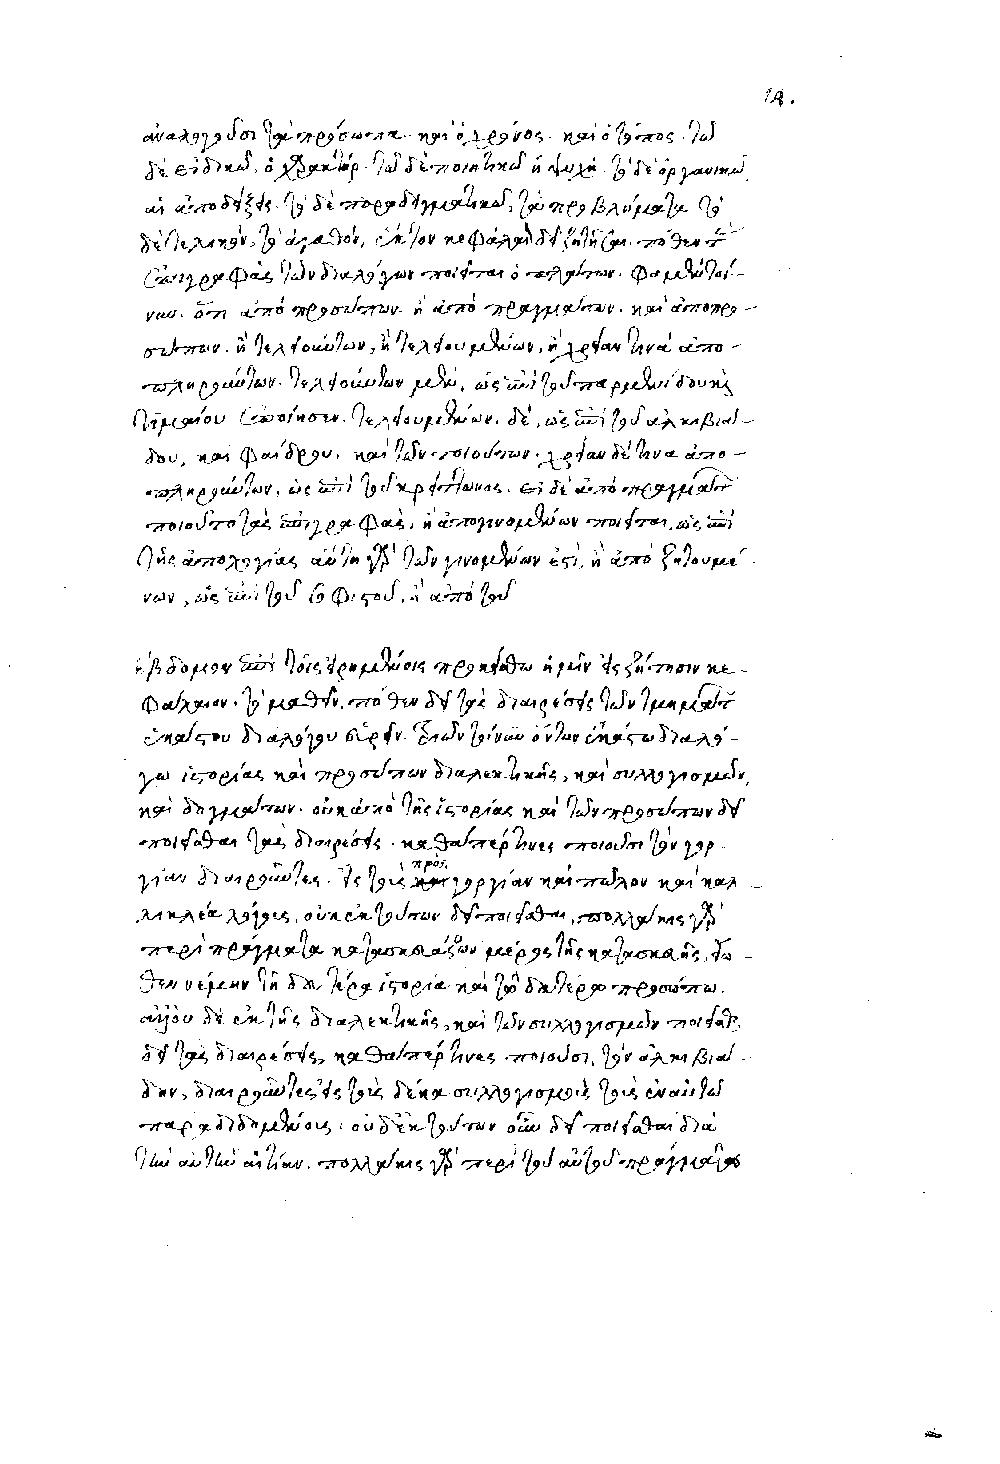 14.
ἀναλογοῦσι τὰ πρόσωπα καὶ ὁ χρόνος καὶ ὁ τόπος. τῷ
δὲ εἰδικῷ, ὁ χαρακτήρ. τῷ δὲ ποιητικῷ ἡ ψυχή. τῷ δὲ ὀργανικῷ,
αἱ ἀποδείξεις. τῷ δὲ παραδειγματικῷ, τὰ προβλήματα τὸ
δὲ τελικὸν, τὸ ἀγαθόν. ἕκτον κεφάλαιον δεῖ ζητῆσαι πόθεν τ
ἐπιγραφὰς τῶν διαλόγων ποιεῖται ὁ πλάτων. φαμὲν τοί-
νυν. ὅτι ἀπὸ προσώπων. ἢ ἀπὸ πραγμάτων. καὶ ἀπὸ προ-
σώπων. ἢ τελειούντων, ἢ τελειουμένων, ἢ χρείαν τινὰ ἀπο-
πληρούντων. τελειούντων μὲν, ὡς ἐπὶ τοῦ παρμενίδου κ
τιμαίου ἐποίησεν. τελειουμένων. δέ, ὡς ἐπὶ τοῦ ἀλκιβιά-
δου, καὶ φαίδρου. καὶ τῶν τοιούτων. χρείαν δέ τινα ἀπο-
πληρούντων, ὡς ἐπὶ τοῦ κρίτωνος. εἰ δὲ ἀπὸ πραγμάτ
ποιοῦτο τὰς ἐπιγραφὰς, ἢ ἀπογινομένων ποιεῖται, ὡς ἐπὶ
τῆς ἀπολογίας αὕτη γὰρ τῶν γινομένων ἐστί, ἢ ἀπὸ ζητουμέ
νων, ὡς ἐπὶ τοῦ σοφιστοῦ, ἢ ἀπὸ τοῦ
ἕβδομον ἐπὶ τοῖς εἰρημένοις προκείσθω ἡμῖν εἰς ζήτησιν κε-
φάλαιον. τὸ μαθεῖν. πόθεν δεῖ τὰς διαιρέσεις τῶν τμημάτ
ἑκάστου διαλόγου εὑρεῖν. τοίνυν ὄντων ἑκάστῳ διαλό-
γῳ ἱστορίας καὶ προσώπων διαλεκτικῆς, καὶ συλλογισμῶν,
καὶ δογμάτων. οὐκ ἀπὸ τῆς ἱστορίας καὶ τῶν προσώπων δεῖ
ποιεῖσθαι τὰς διαιρέσεις. καθάπερ τινες ποιοῦσι τὸν γορ
γίαν διαιροῦντες. εἰς τοὺς πρὸς γοργίαν καὶ πῶλον καὶ καλ-
λικλέα λόγους, οὐκ ἐκ τούτων δεῖ ποιεῖσθαι, πολλάκις γὰρ
περὶ πράγματα κατασκευάζων μέρος τῆς κατασκευῆς, τὸ
θεν νέμειν τῇ δευτέρᾳ ἱστορίᾳ καὶ τῷ δευτέρῳ προσώπῳ.
ἀλλ' οὐδὲ ἐκ τῆς διαλεκτικῆς, καὶ τῶν συλλογισμῶν ποιεῖσθ
δεῖ τὰς διαιρέσεις, καθάπερ τινες ποιοῦσι, τὸν ἀλκιβιά-
δην, διαιροῦντες εἰς τοὺς δέκα συλλογισμοὺς τοὺς ἐν αὐτῷ
παραδιδομένους. οὐδ' ἐκ τούτων οὖν δεῖ ποιεῖσθαι διὰ
τὴν αὐτὴν αἰτίαν. πολλάκις γὰρ περὶ τοῦ αὐτοῦ πράγματος